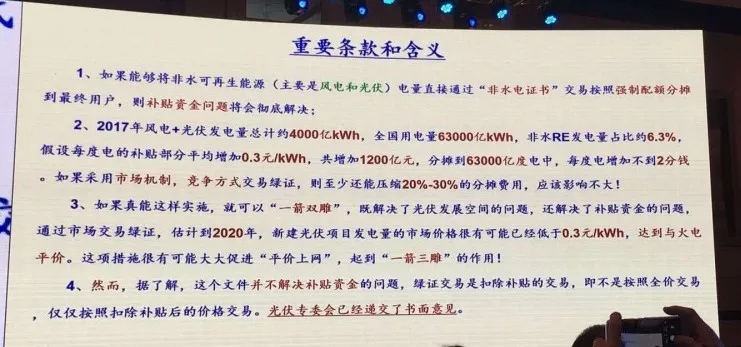 重要条款和含义
1、如果能够将非水可再生能源（主要是风电和光伏）电量直接通过“非水电证书”交易按照强制配额分摊
到最终用户，则补贴资金问题将会彻底解决；
2、2017年风电+光伏发电量总计约4000亿kWh，全国用电量63000亿kWh，非水RE发电量占比约6.3%，
假设每度电的补贴部分平均增加0.3元/kWh，共增加1200亿元，分摊到63000亿度电中，每度电增加不到2分钱
。如果采用市场机制，竞争方式交易绿证，则至少还能压缩20%-30%的分摊费用，应该影响不大！
3、如果真能这样实施，就可以“一箭双雕”，既解决了光伏发展空间的问题，还解决了补贴资金的问题，
通过市场交易绿证，估计到2020年，新建光伏项目发电量的市场价格很有可能已经低于0.3元/kWh，达到与火电
平价。这项措施很有可能大大促进“平价上网”，起到“一箭三雕”的作用！
4、然而，据了解，这个文件并不解决补贴资金的问题，绿证交易是扣除补贴的交易，即不是按照全价交易
，仅仅按照扣除补贴后的价格交易。光伏专委会已经递交了书面意见。